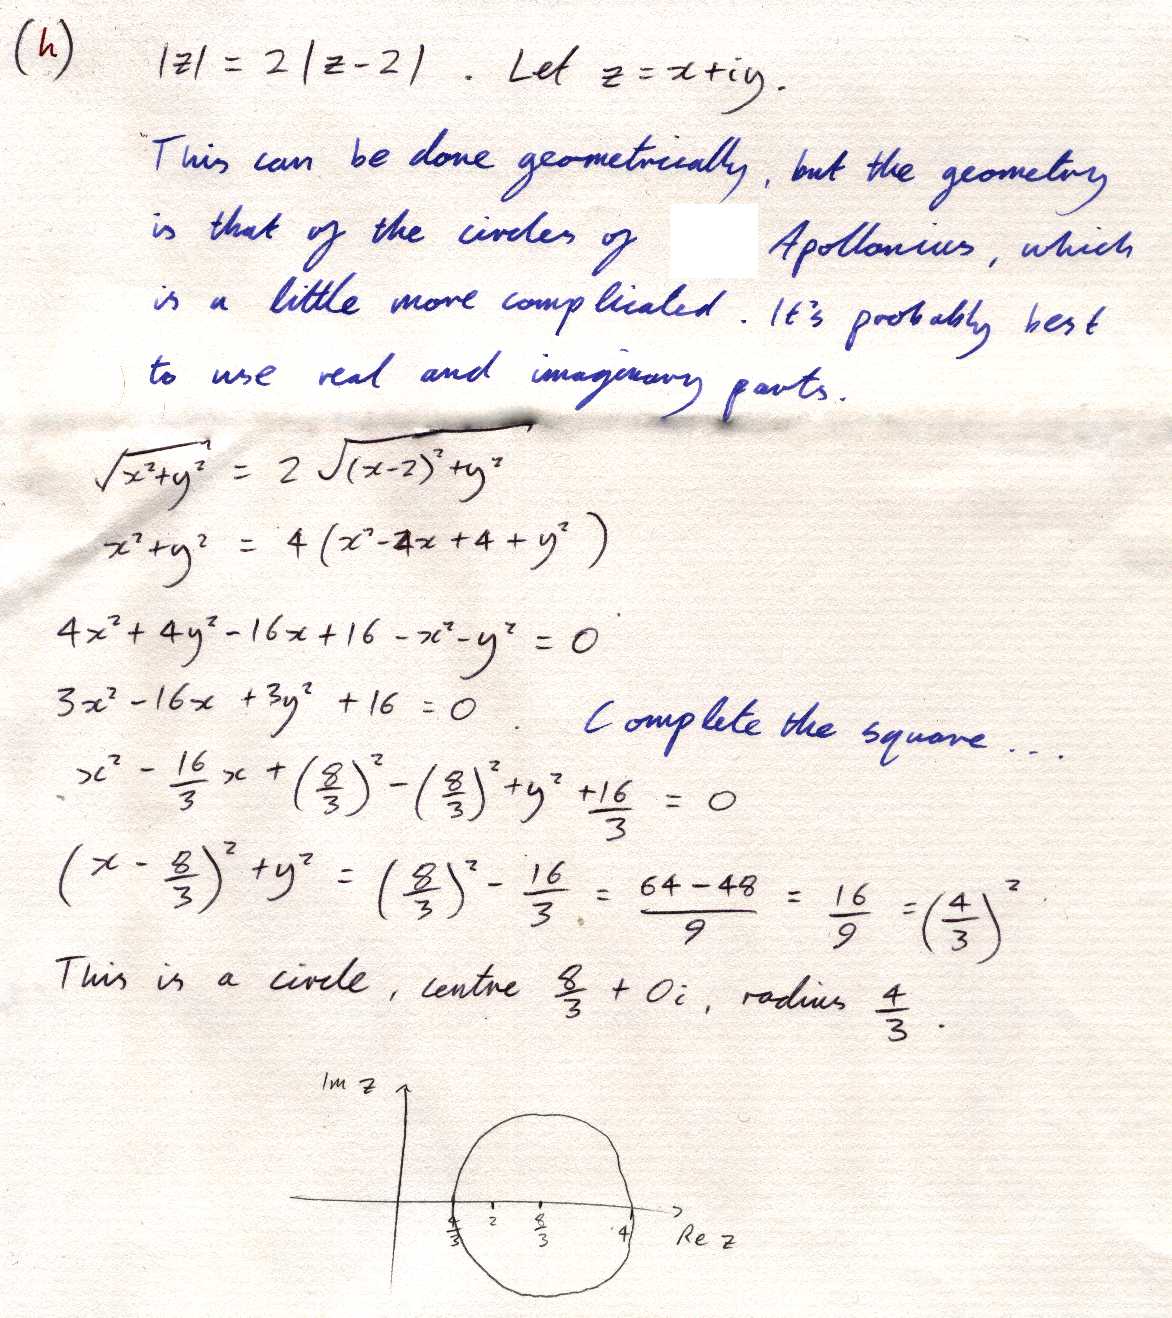 (h) |z| = 2|z-2| . Let z = x+iy.
This can be done geometrically, but the geometry
is that of the circles of Apollonius, which
is a little more complicated. It's probably best
to use real and imaginary parts.
√(x²+y²) = 2 √((x-2)²+y²)
x²+y² = 4(x²-4x+4+y²)
4x²+4y²-16x+16-x²-y² = 0
3x²-16x+3y²+16 = 0. Complete the square...
x² - 16/3 x + (8/3)² - (8/3)² + y² + 16/3 = 0
(x - 8/3)² + y² = (8/3)² - 16/3 = (64-48)/9 = 16/9 = (4/3)²
This is a circle, centre 8/3 + 0i, radius 4/3.
Im z
4/3 2 8/3 4 Re z